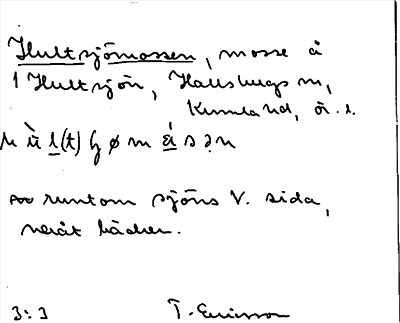 Hultsjömossen, mosse å
1 Hultsjön, Hallsbergs sn,
Kumla hd, ör. l.
runtom sjöns V. sida,
neråt bäcken.
3:3 T. Ericsson